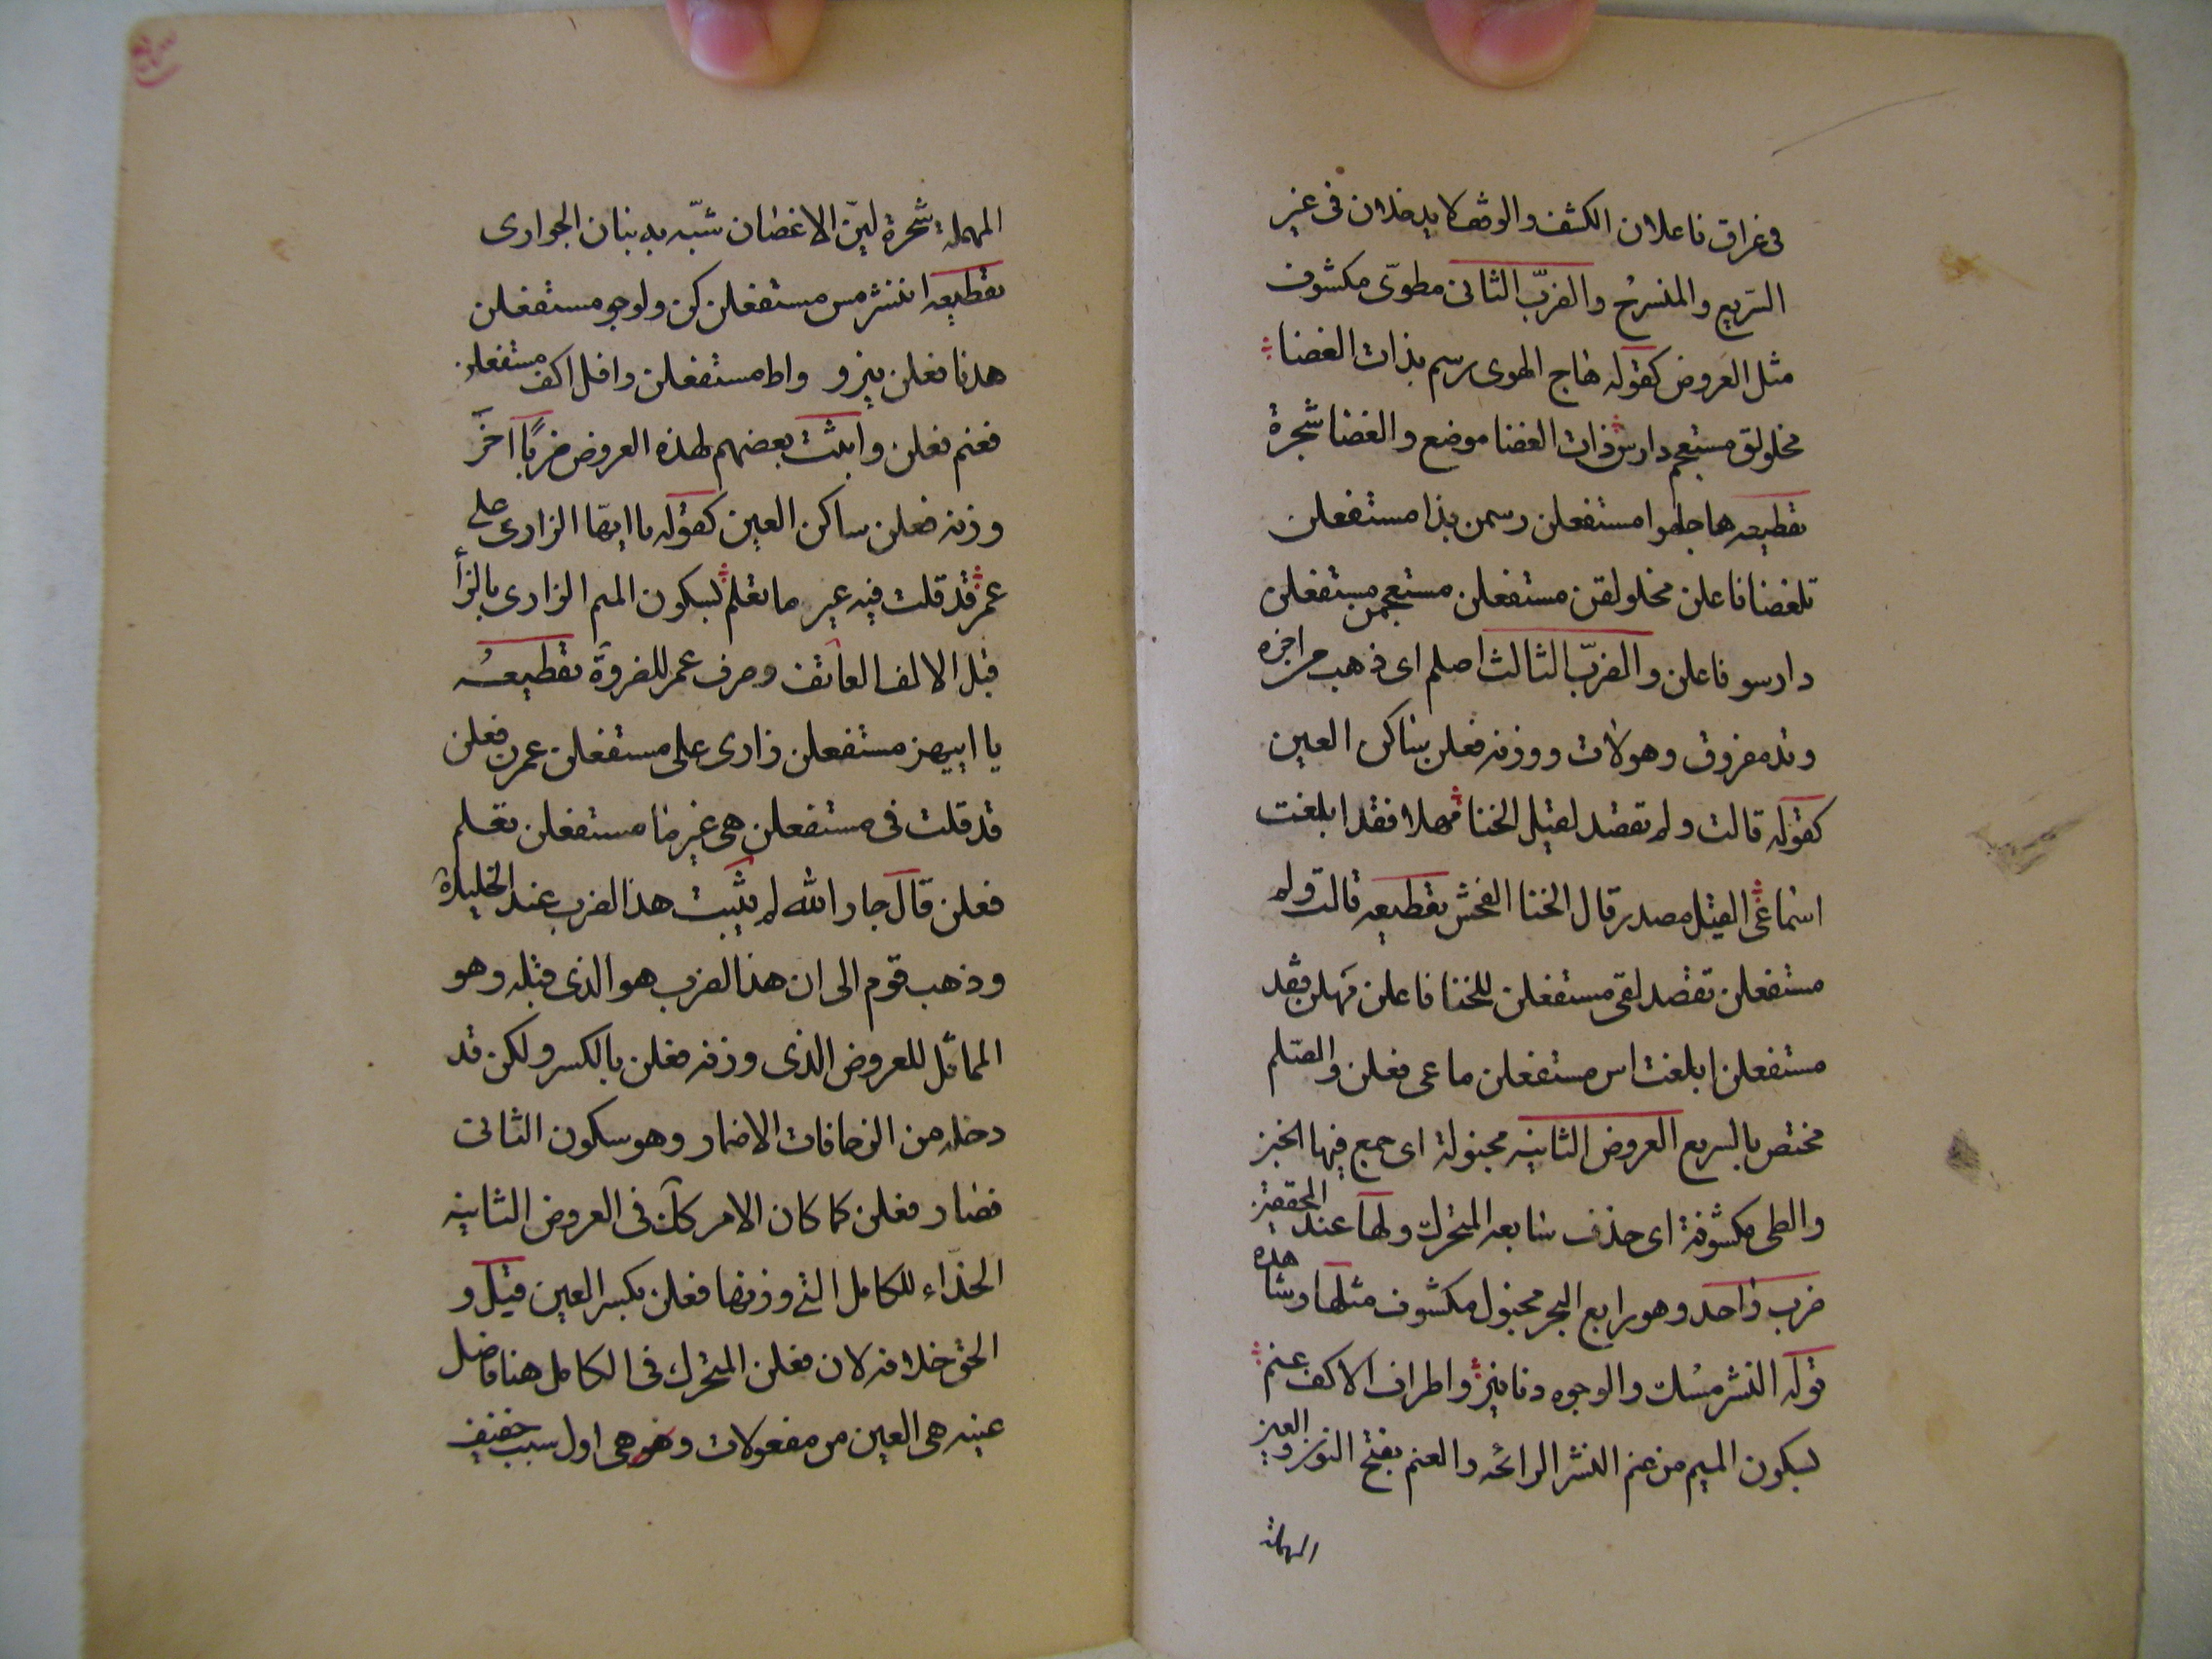 فى عراق فاعلان الكشف والوقف لا يدخلان فى غير
السّريع والمنسرح والضربّ الثانى مطوىّ مكشوف
مثل العروض كقوله هاج الهوى رسم بذات الغضا
مخلولق مستعجم دارس ذات الغضا موضع والغضا شجرة
تقطيعه هاجلهوا مستفعلن رسمن بذا مستفعلن
تلغضا فاعلن مخلولقن مستفعلن مستعجمن مستفعلن
دارسو فاعلن والضربّ الثالث اصلم اى ذهب من اخره
وتد مفروق وهو لات ووزنه فعلن ساكن العين
كقوله قالت ولم تقصد لقيل الخنا مهلا فقد ابلغت
اسماعى القيل مصدر قال الخنا الفحش تقطيعه قالت ولم
مستفعلن تقصد لقى مستفعلن للخنا فاعلن مهلن فقد
مستفعلن ابلغت اس مستفعلن ماعى فعلن والصلم
مختص بالسريع العروض الثانيه مخبولة اى جمع فيها الخبن
والطى مكشوفة اى حذف سابعه المتحرك ولها عند المحققين
ضرب واحد وهو رابع البحر مخبول مكشوف مثلها وشاهده
قوله النشر مسك والوجوه دنانير واطراف الاكف عنم
بسكون الميم من عنم النشر الرائحه والعنم بفتح النون والعين
المهملة
المهملة شجرة ليّن الاغصان شبّه به بنان الجوارى
تقطيعه اننشر مس مستفعلن كن ولوجو مستفعلن
هدنا فعلن نيرو واط مستفعلن رافل اكف مستفعلن
فعنم فعلن واثبت بعضهم لهذه العروض ضربًا اخر
وزنه فعلن ساكن العين كقوله يا ايّها الزارى على
عمر قد قلت فيه غير ما تعلم بسكون الميم الزارى بالزأ
قبل الالف العائف وصرف عمر للضرورة تقطيعه
يا اييهز مستفعلن زارى على مستفعلن عمرن فعلن
قد قلت فى مستفعلن هى غير ما مستفعلن تعلم
فعلن قال جار الله لم يثبت هذا الضرب عند الخليل
وذهب قوم الى ان هذا الضرب هو الذى قبله وهو
المماثل للعروض الذى وزنه فعلن بالكسر ولكن قد
دخله من الزحافات الاضمار وهو سكون الثانى
فصار فعلن كما كان الامر كك فى العروض الثانيه
الحذّاء للكامل التى وزنها فعلن بكسر العين قيل و
الحق خلافه لان فعلن المتحرك فى الكامل هنا فاصل
عينه هى العين من مفعولات وهى اول سبب خفيف